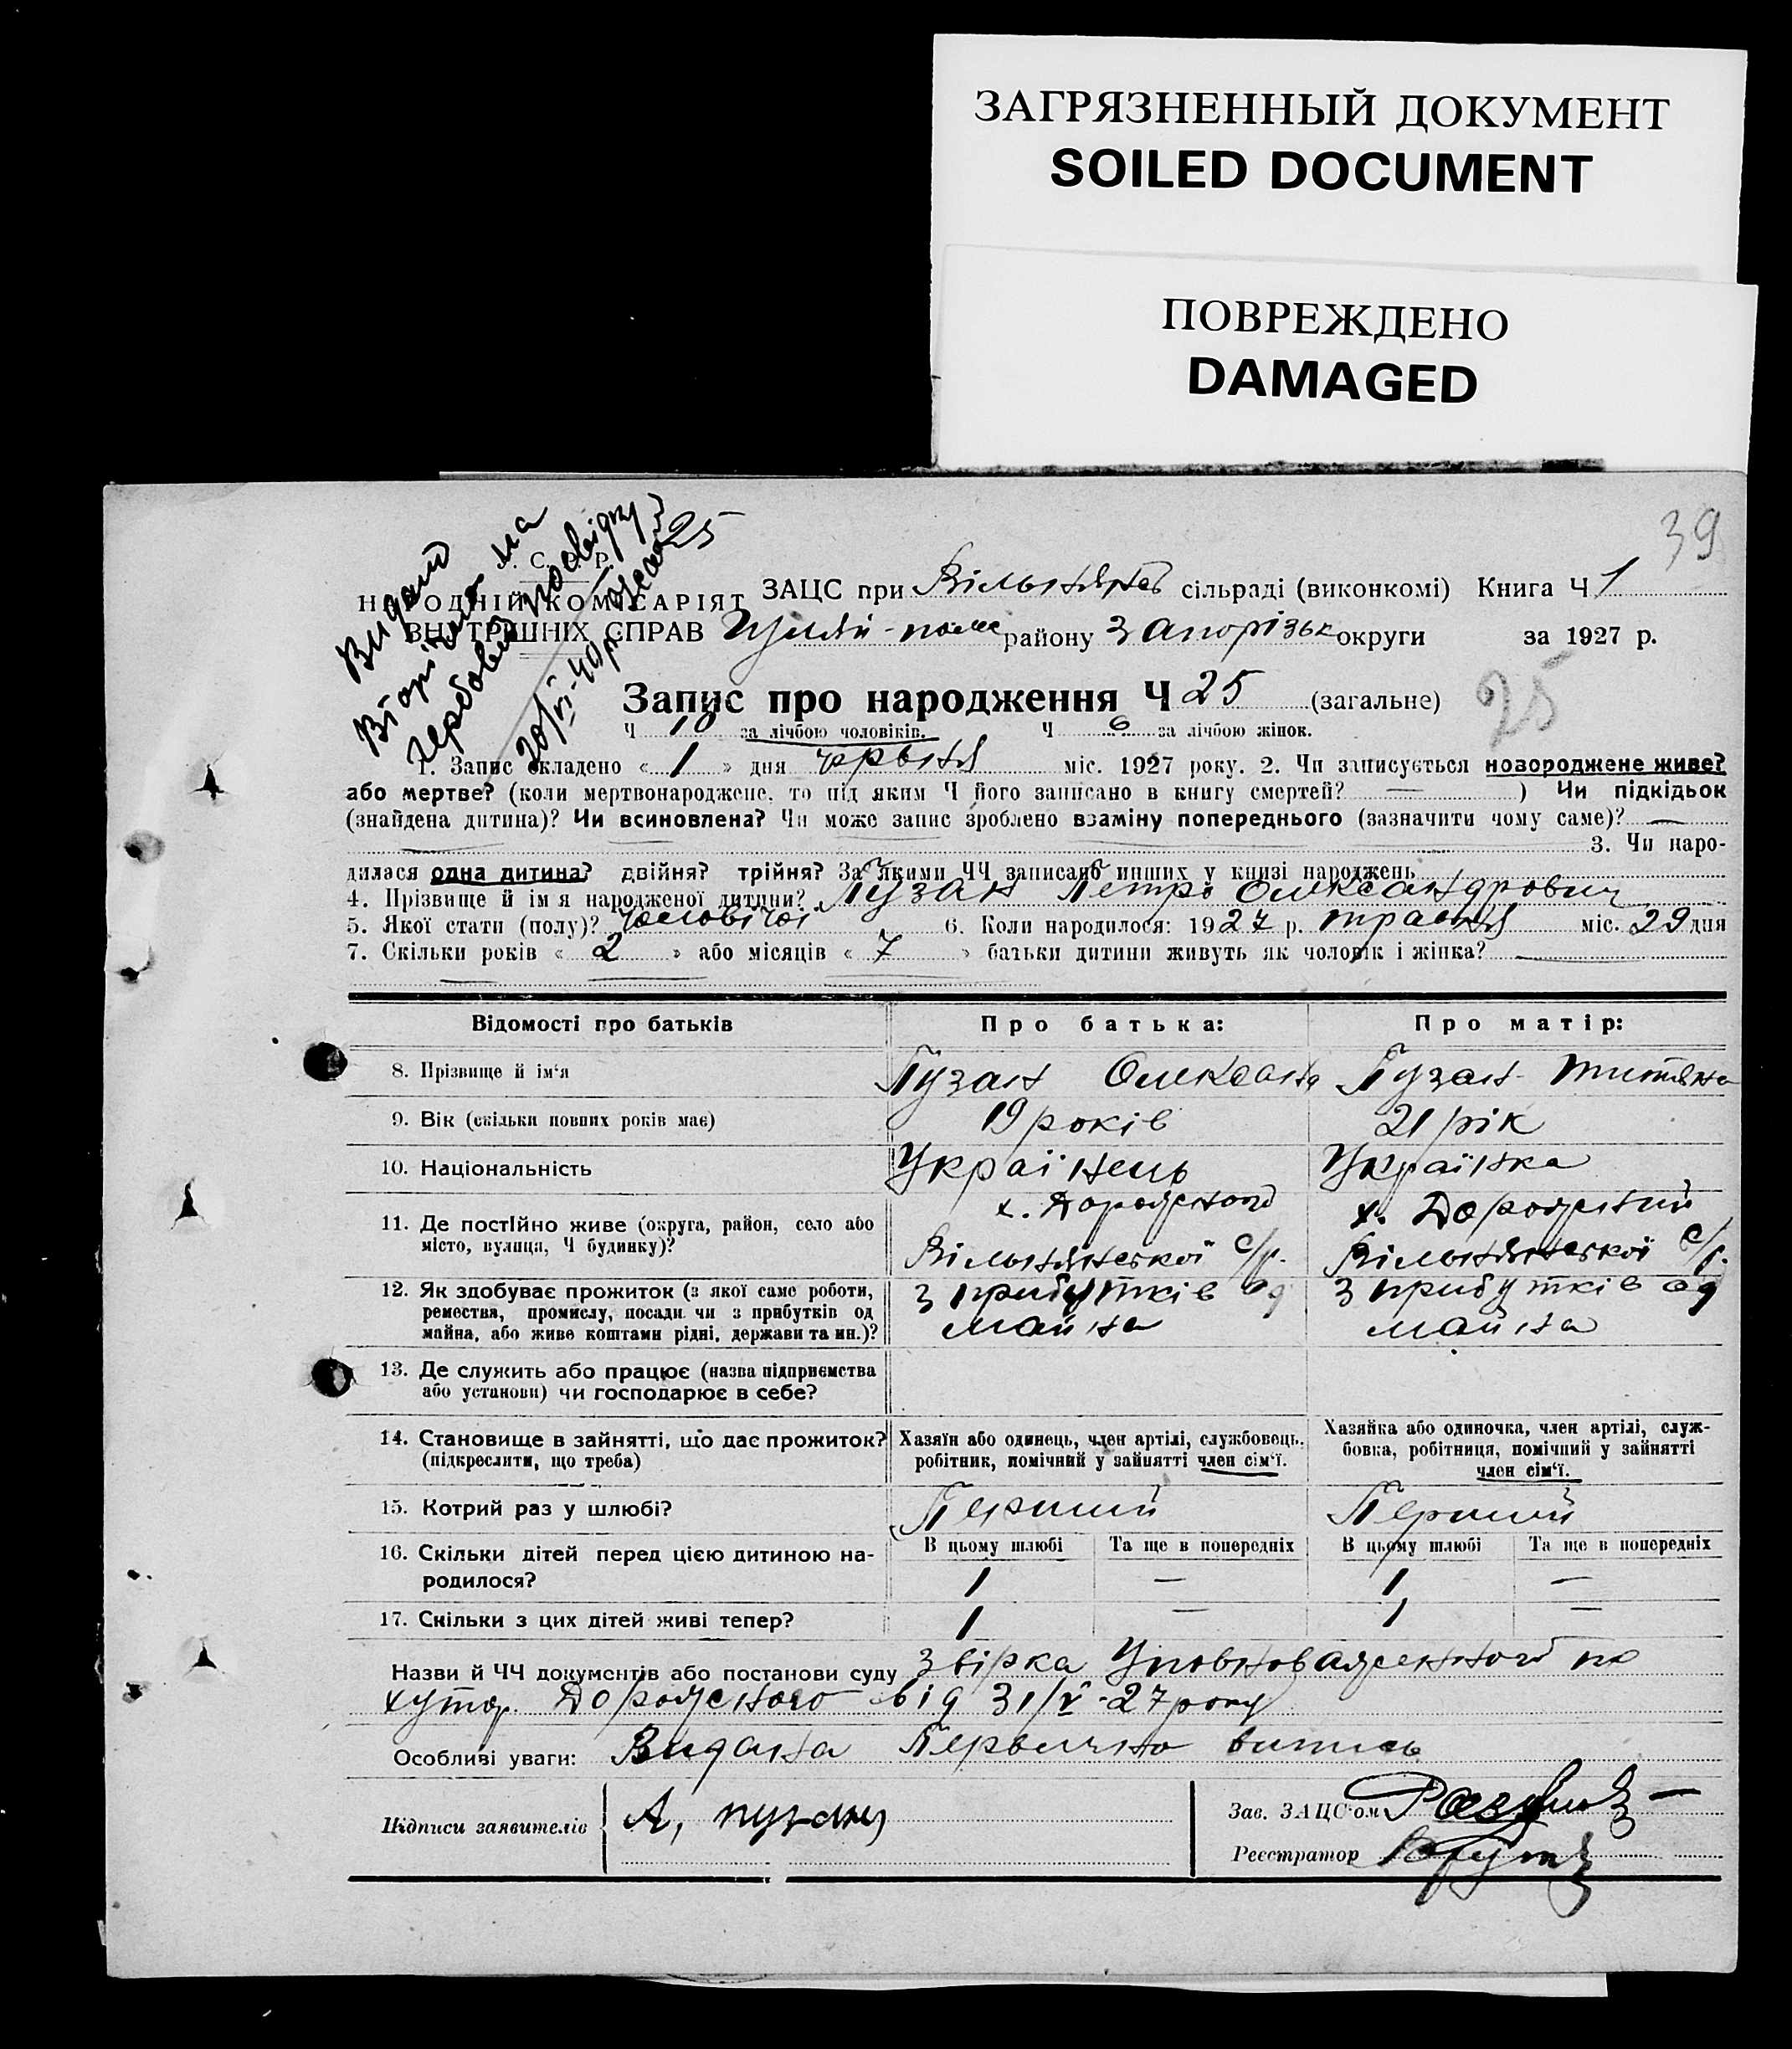 ЗАГРЯЗНЕННЫЙ ДОКУМЕНТ
SOILED DOCUMENT
ПОВРЕЖДЕНО
DAMAGED
39
25
НАРОДНІЙ КОМІСАРІЯТ
ВНУТРІШНІХ СПРАВ
Видано
на
20/VI-40р
ЗАЦС при сільраді (виконкомі) Книга Ч 1
Гуляй-поле району Запорізьк округи за 1927 р.
Запис про народження Ч 25 (загальне)
25
Ч 10 за лічбою чоловіків. Ч 6 за лічбою жінок.
1. Запис складено « 1 » дня червня міс. 1927 року. 2. Чи записується новороджене живе?
або мертве? (коли мертвонароджене, то під яким Ч його записано в книгу смертей? — ) Чи підкідьок
(знайдена дитина)? Чи всиновлена? Чи може запис зроблено взаміну попереднього (зазначити чому саме)? —
3. Чи наро-
дилася одна дитина? двійня? трійня? За якими ЧЧ записано инших у книзі народжень
4. Прізвище й ім'я народженої дитини? Пузан Петро Олександрович
5. Якої стати (полу)? чоловічої 6. Коли народилося: 1927 р. травня міс. 29 дня
7. Скільки років « 2 » або місяців « 7 » батьки дитини живуть як чоловік і жінка? —
Відомості про батьків Про батька: Про матір:
8. Прізвище й ім'я Пузан Пузан
9. Вік (скільки повних років має) 19 років 21 рік
10. Національність Українець Українка
11. Де постійно живе (округа, район, село або місто, вулиця, Ч будинку)?
х. Дорожного х. Дорожний
Вільнянської с/р. Вільнянської с/р.
12. Як здобуває прожиток (з якої саме роботи,
ремества, промислу, посади чи з прибутків од
майна, або живе коштами рідні, держави та ин.)?
з прибутків од майна з прибутків од майна
13. Де служить або працює (назва підприємства
або установи) чи господарює в себе?
14. Становище в зайнятті, що дає прожиток?
(підкреслити, що треба)
Хазяїн або одинець, член артілі, службовець,
робітник, помічний у зайнятті член сім'ї.
Хазяйка або одиночка, член артілі, служ-
бовка, робітниця, помічний у зайнятті
член сім'ї.
15. Котрий раз у шлюбі? Перший Перший
16. Скільки дітей перед цією дитиною на-
родилося?
В цьому шлюбі Та ще в попередніх В цьому шлюбі Та ще в попередніх
1 — 1 —
17. Скільки з цих дітей живі тепер? 1 — 1 —
Назви й ЧЧ документів або постанови суду Уповноваженного по
хутор. Дорожного від 31/V-27 року
Особливі уваги: Видана Первична випись
Підписи заявителів А, пузан
Зав. ЗАЦС'ом
Реєстратор